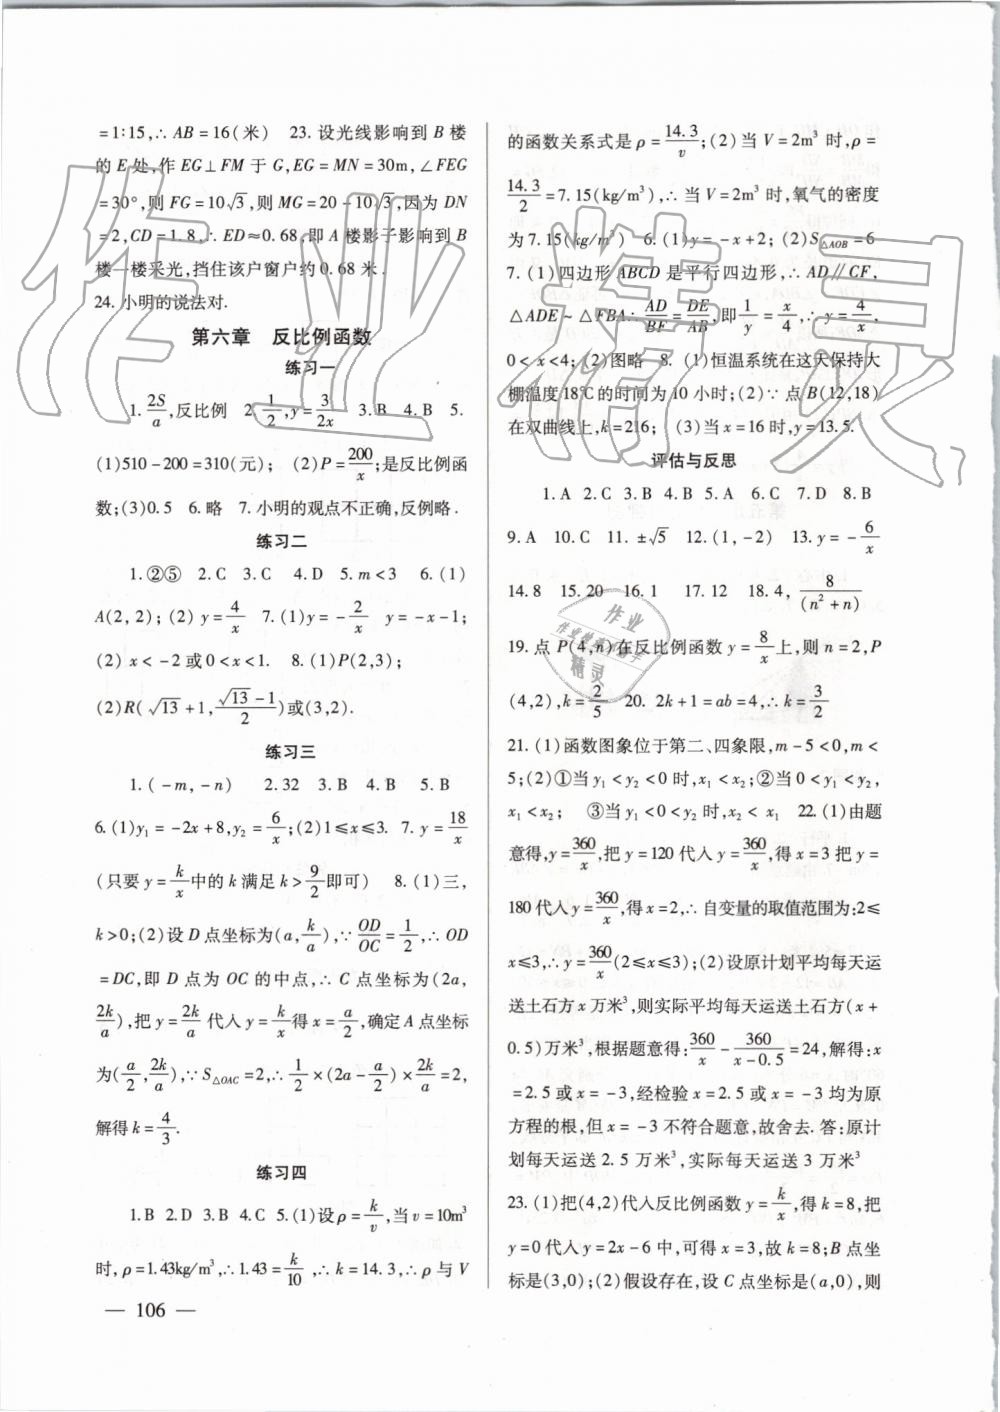 =1∶15,∴AB=16(米)　23. 设光线影响到 B 楼
的 E 处,作 EG⊥FM 于 G,EG=MN=30m,∠FEG
=30°,则 FG=10√3,则 MG=20-10√3,因为 DN
=2,CD=1.8,∴ED≈0.68,即 A 楼影子影响到 B
楼一楼采光,挡住该户窗户约 0.68 米.
24. 小明的说法对.
第六章　反比例函数
练习一
1. 2S/a,反比例　2. 1/2,y=3/(2x)　3. B　4. B　5.
(1)510-200=310(元);　(2)P=200/x;是反比例函
数;(3)0.5　6. 略　7. 小明的观点不正确,反例略.
练习二
1. ②⑤　2. C　3. C　4. D　5. m<3　6. (1)
A(2,2);(2)y=4/x　7. (1)y=-2/x　y=-x-1;
(2) x<-2 或 0<x<1.　8. (1)P(2,3);
(2)R(√13+1,(√13-1)/2)或(3,2).
练习三
1. (-m,-n)　2. 32　3. B　4. B　5. B
6. (1)y₁=-2x+8,y₂=6/x;(2)1≤x≤3.　7. y=18/x
(只要 y=k/x 中的 k 满足 k>9/2 即可)　8. (1)三,
k>0;(2)设 D 点坐标为(a,k/a),∵OD/OC=1/2,∴OD
=DC,即 D 点为 OC 的中点,∴C 点坐标为(2a,
2k/a),把 y=2k/a 代入 y=k/x 得 x=a/2,确定 A 点坐标
为(a/2,2k/a),∵S△OAC=2,∴1/2×(2a-a/2)×2k/a=2,
解得 k=4/3.
练习四
1. B　2. D　3. B　4. C　5. (1)设 ρ=k/v,当 v=10m³
时,ρ=1.43kg/m³,∴1.43=k/10,∴k=14.3,∴ρ 与 V
— 106 —
的函数关系式是 ρ=14.3/v;(2)当 V=2m³ 时,ρ=
14.3/2=7.15(kg/m³),∴当 V=2m³ 时,氧气的密度
为 7.15(kg/m³)　6. (1)y=-x+2;(2)S△AOB=6
7. (1)四边形 ABCD 是平行四边形,∴AD∥CF,
△ADE∽△FBA∴AD/BF=DE/AB,即1/y=x/4,∴y=4/x,
0<x<4;(2)图略　8. (1)恒温系统在这天保持大
棚温度 18℃的时间为 10 小时;(2)∵点 B(12,18)
在双曲线上,k=216;　(3)当 x=16 时,y=13.5.
评估与反思
1. A　2. C　3. B　4. B　5. A　6. C　7. D　8. B
9. A　10. C　11. ±√5　12. (1,-2)　13. y=-6/x
14. 8　15. 20　16. 1　17. 12　18. 4,8/(n²+n)
19. 点 P(4,n)在反比例函数 y=8/x 上,则 n=2,P
(4,2),k=2/5　20. 2k+1=ab=4,∴k=3/2
21. (1)函数图象位于第二、四象限,m-5<0,m<
5;(2)①当 y₁<y₂<0 时,x₁<x₂;②当 0<y₁<y₂,
x₁<x₂;　③当 y₁<0<y₂ 时,x₂<x₁　22. (1)由题
意得,y=360/x,把 y=120 代入 y=360/x,得 x=3 把 y=
180 代入 y=360/x,得 x=2,∴自变量的取值范围为:2≤
x≤3,∴y=360/x(2≤x≤3);(2)设原计划平均每天运
送土石方 x 万米³,则实际平均每天运送土石方(x+
0.5)万米³,根据题意得:360/x-360/(x-0.5)=24,解得:x
=2.5 或 x=-3,经检验 x=2.5 或 x=-3 均为原
方程的根,但 x=-3 不符合题意,故舍去.答:原计
划每天运送 2.5 万米³,实际每天运送 3 万米³
23. (1)把(4,2)代入反比例函数 y=k/x,得 k=8,把
y=0 代入 y=2x-6 中,可得 x=3,故 k=8;B 点坐
标是(3,0);(2)假设存在,设 C 点坐标是(a,0),则
作业精灵
作业
精灵